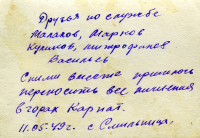 Друзья по службе
Малахов, Марков
Куликов, Митрофанов
Васильев
С ними вместе пришлось
переносить все лишения
в горах Карпат.
11.05.49г. с. Смильница.